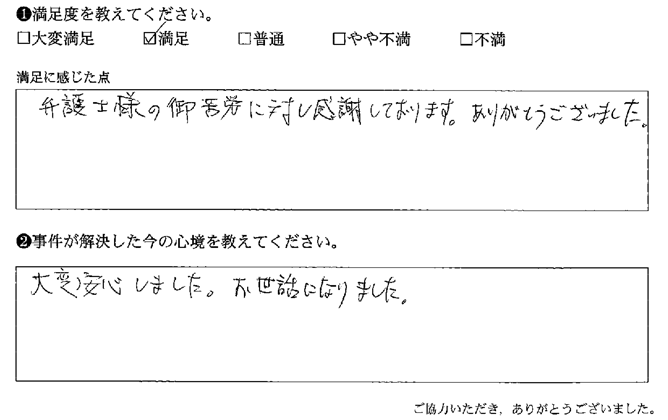 ❶満足度を教えてください。
□大変満足 ☑満足 □普通 □やや不満 □不満
満足に感じた点
弁護士様の御苦労に対し感謝しております。ありがとうございました。
❷事件が解決した今の心境を教えてください。
大変安心しました。お世話になりました。
ご協力いただき，ありがとうございました。